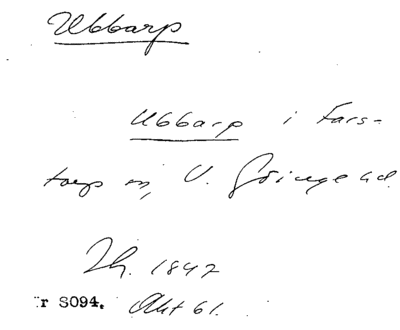 Ubbarp
Ubbarp i Fars-
torp sn, V. Göinge hd.
Jh. 1847
r S094. Akt 61.